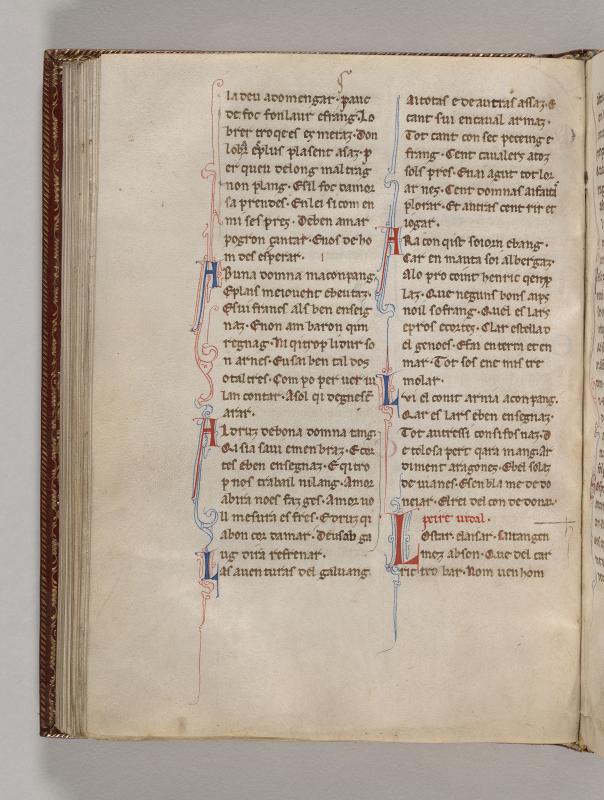 la deu adomengar · pauc
de foc fon laur efrang · Lo
brer tro qe es ez meraz · Don
plasent asaz · p
er queu delong maltrag
non plang · Esil foc damor
sa prendes · En lei si com en
mi ses prez · Deben amar
pogron cantar · Enos de ho
m des esperar ·
A Buna domna maconpang ·
Eplais
Esui francs als ben enseig
naz · Enon am baron qim
regnag · Ni qi trop lidur so
n arnes · Eu sai ben tal dos
o tal tres · Com po per ver iu
lan contar · A sol qi
arar ·
A l druz debona domna tang ·
Qisia saui emenbraz · Ecor
tes eben ensegnaz · E qi tro
p nos trabail nilang · Amor
abira noes faz ges · Amor uo
ll mesura es fres · Edruz qi
abon cor damar · Deu sab ga
ug dira refrenar ·
L as auenturas del galuang ·
Ai totas e de autras assaz · E
cant sui en caual armaz ·
Tot cant con sec peceing e
frang · Cent cavalers atoz
sols pres · En ai agut toz lor
ar nez · Cent domnas
plorar · Et autras cent rir et
iogar ·
A Ra con qist so iorn ebang ·
Car en manta soi albergaz ·
Alo pro coint henric
laz · Que neguns bons aips
noil sofrang · Quel es lars
epros ecortes · Clar estela d
el genoes · E fai en terra et en
mar · Tot sos enemis tre
molar ·
L vi el conit arnia aconpang ·
Qar es lars eben ensegnaz ·
Tot autressi con si fos naz · D
e tolosa pert qara mang ar
diment aragones · Ebel solaz
de uianes · E senbla me de do
neiar · El rei del con de donar ·
peire uidal ·
L Ostar clausar · Lautangen
moz absen · Que del car
ric tro bar · Nom uen hom